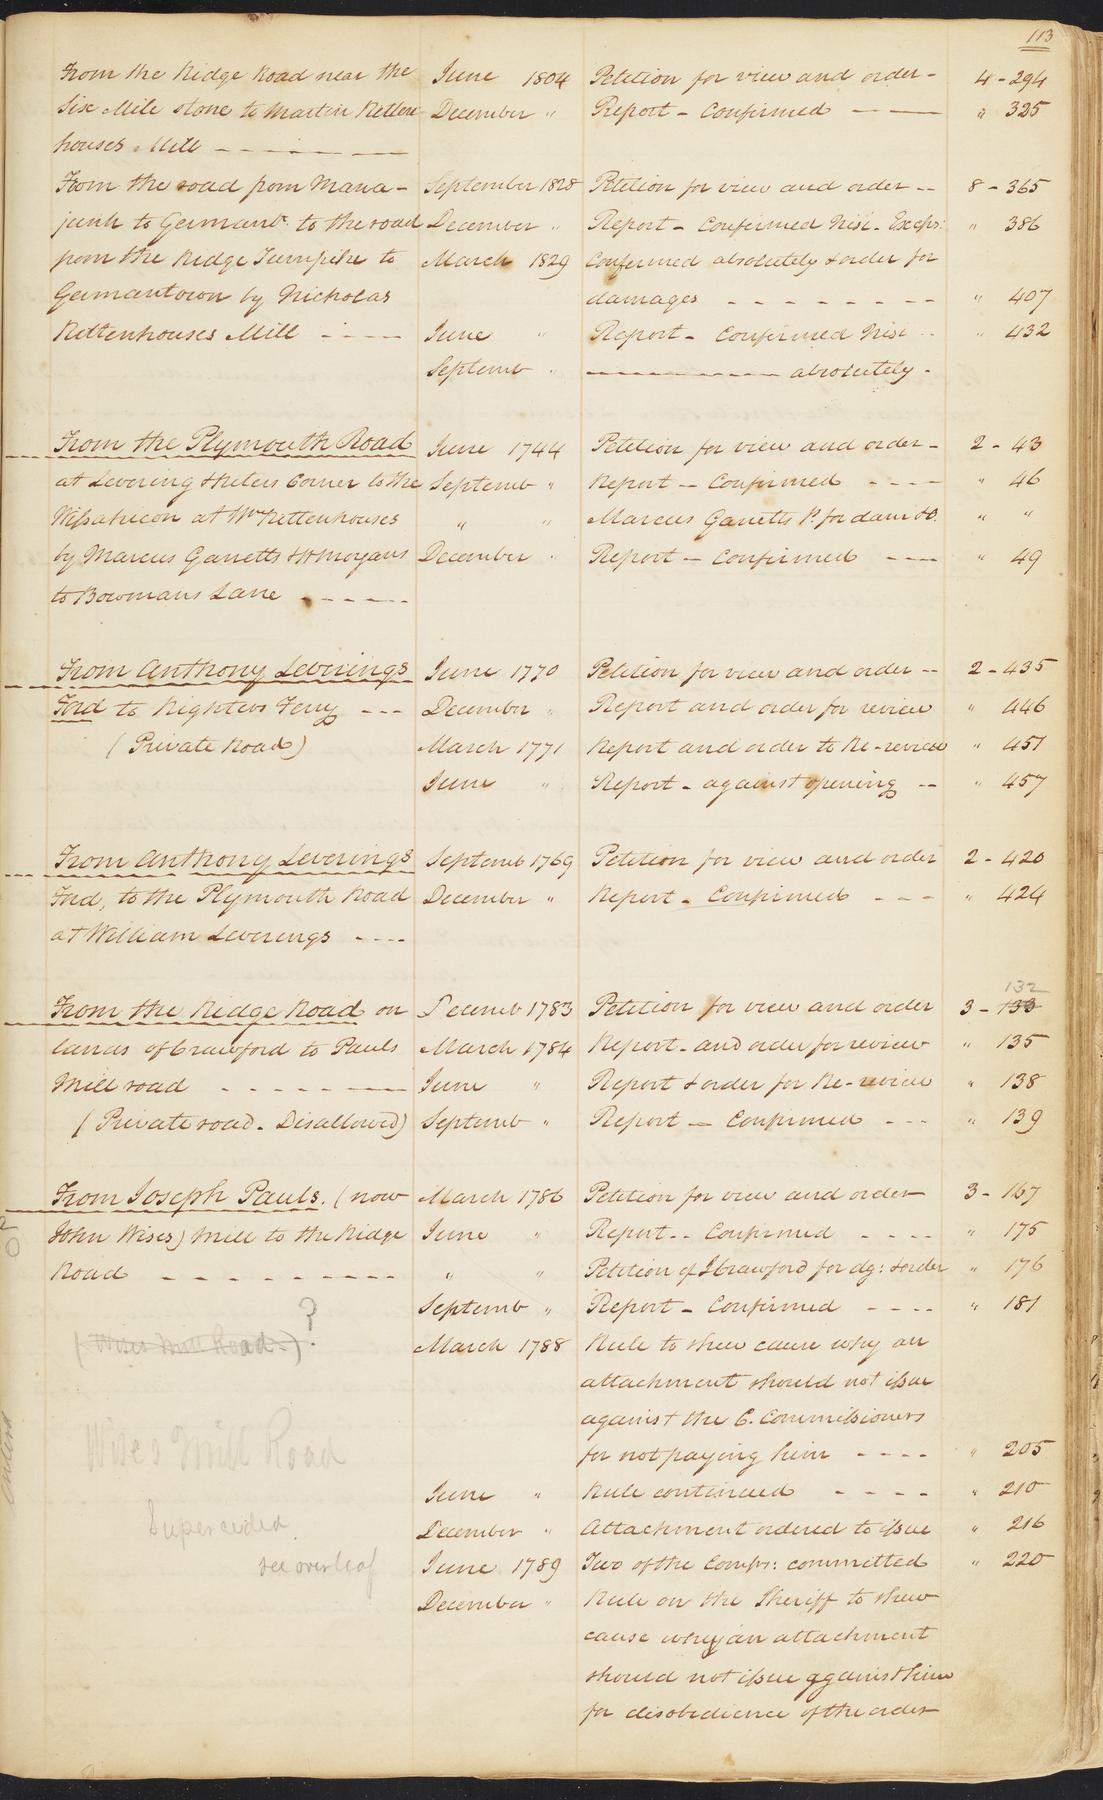 113
From the Ridge Road near the June 1804 Petition for view and order - 4 - 294
Six Mile stone to Martin Ritten December " Report - Confirmed - " 325
houses Mill - - - - -
From the road from Mana- September 1828 Petition for view and order -- 8 - 365
junk to Germant. to the road December " Report - Confirmed Nisi - Exceps: " 386
from the Ridge Turnpike to March 1829 Confirmed absolutely & order for
Germantown by Nicholas damages - - - - - - - - " 407
Rittenhouses Mill - - - - June " Report - Confirmed Nisi -- " 432
Septemb " ---------- absolutely -
From the Plymouth Road June 1744 Petition for view and order - 2 - 43
at Levering & Peters Corner to the Septemb " Report - Confirmed - - - - " 46
Wissahicon at Wm Rittenhouses " " Marcus Garretts P. for dam &c. " "
by Marcus Garretts & Morgans December " Report - Confirmed - - - " 49
to Bowmans Lane - - - - -
From Anthony Leverings June 1770 Petition for view and order -- 2 - 435
Ford to Righters Ferry - - - December " Report and order for review " 446
(Private Road) March 1771 Report and order to Re-review " 451
June " Report - against opening -- " 457
From Anthony Leverings Septemb 1769 Petition for view and order 2 - 420
Ford, to the Plymouth Road December " Report - Confirmed - - - " 424
at William Leverings - - - -
132
From the Ridge Road on Decemb 1783 Petition for view and order 3 - 133
lands of Crawford to Pauls March 1784 Report - and order for review " 135
Mill road - - - - - - June " Report & order for Re-review " 138
(Private road - Disallowed) Septemb " Report - Confirmed - - - " 139
From Joseph Pauls. (now March 1786 Petition for view and order 3 - 167
John Wises) Mill to the Ridge June " Report -- Confirmed - - - - " 175
Road - - - - - - - - - " " Petition of J Crawford for dg: & order " 176
Septemb " Report - Confirmed - - - - " 181
?
(Wises Mill Road -) March 1788 Rule to shew cause why an
attachment should not issue
against the C. Commissioners
Wises Mill Road for not paying him - - - - " 205
June " Rule continued - - - - " 210
Superceded December " Attachment ordered to issue " 216
see overleaf June 1789 Two of the Comrs: committed " 220
December " Rule on the Sheriff to shew
cause why an attachment
should not issue against him
for disobedience of the order